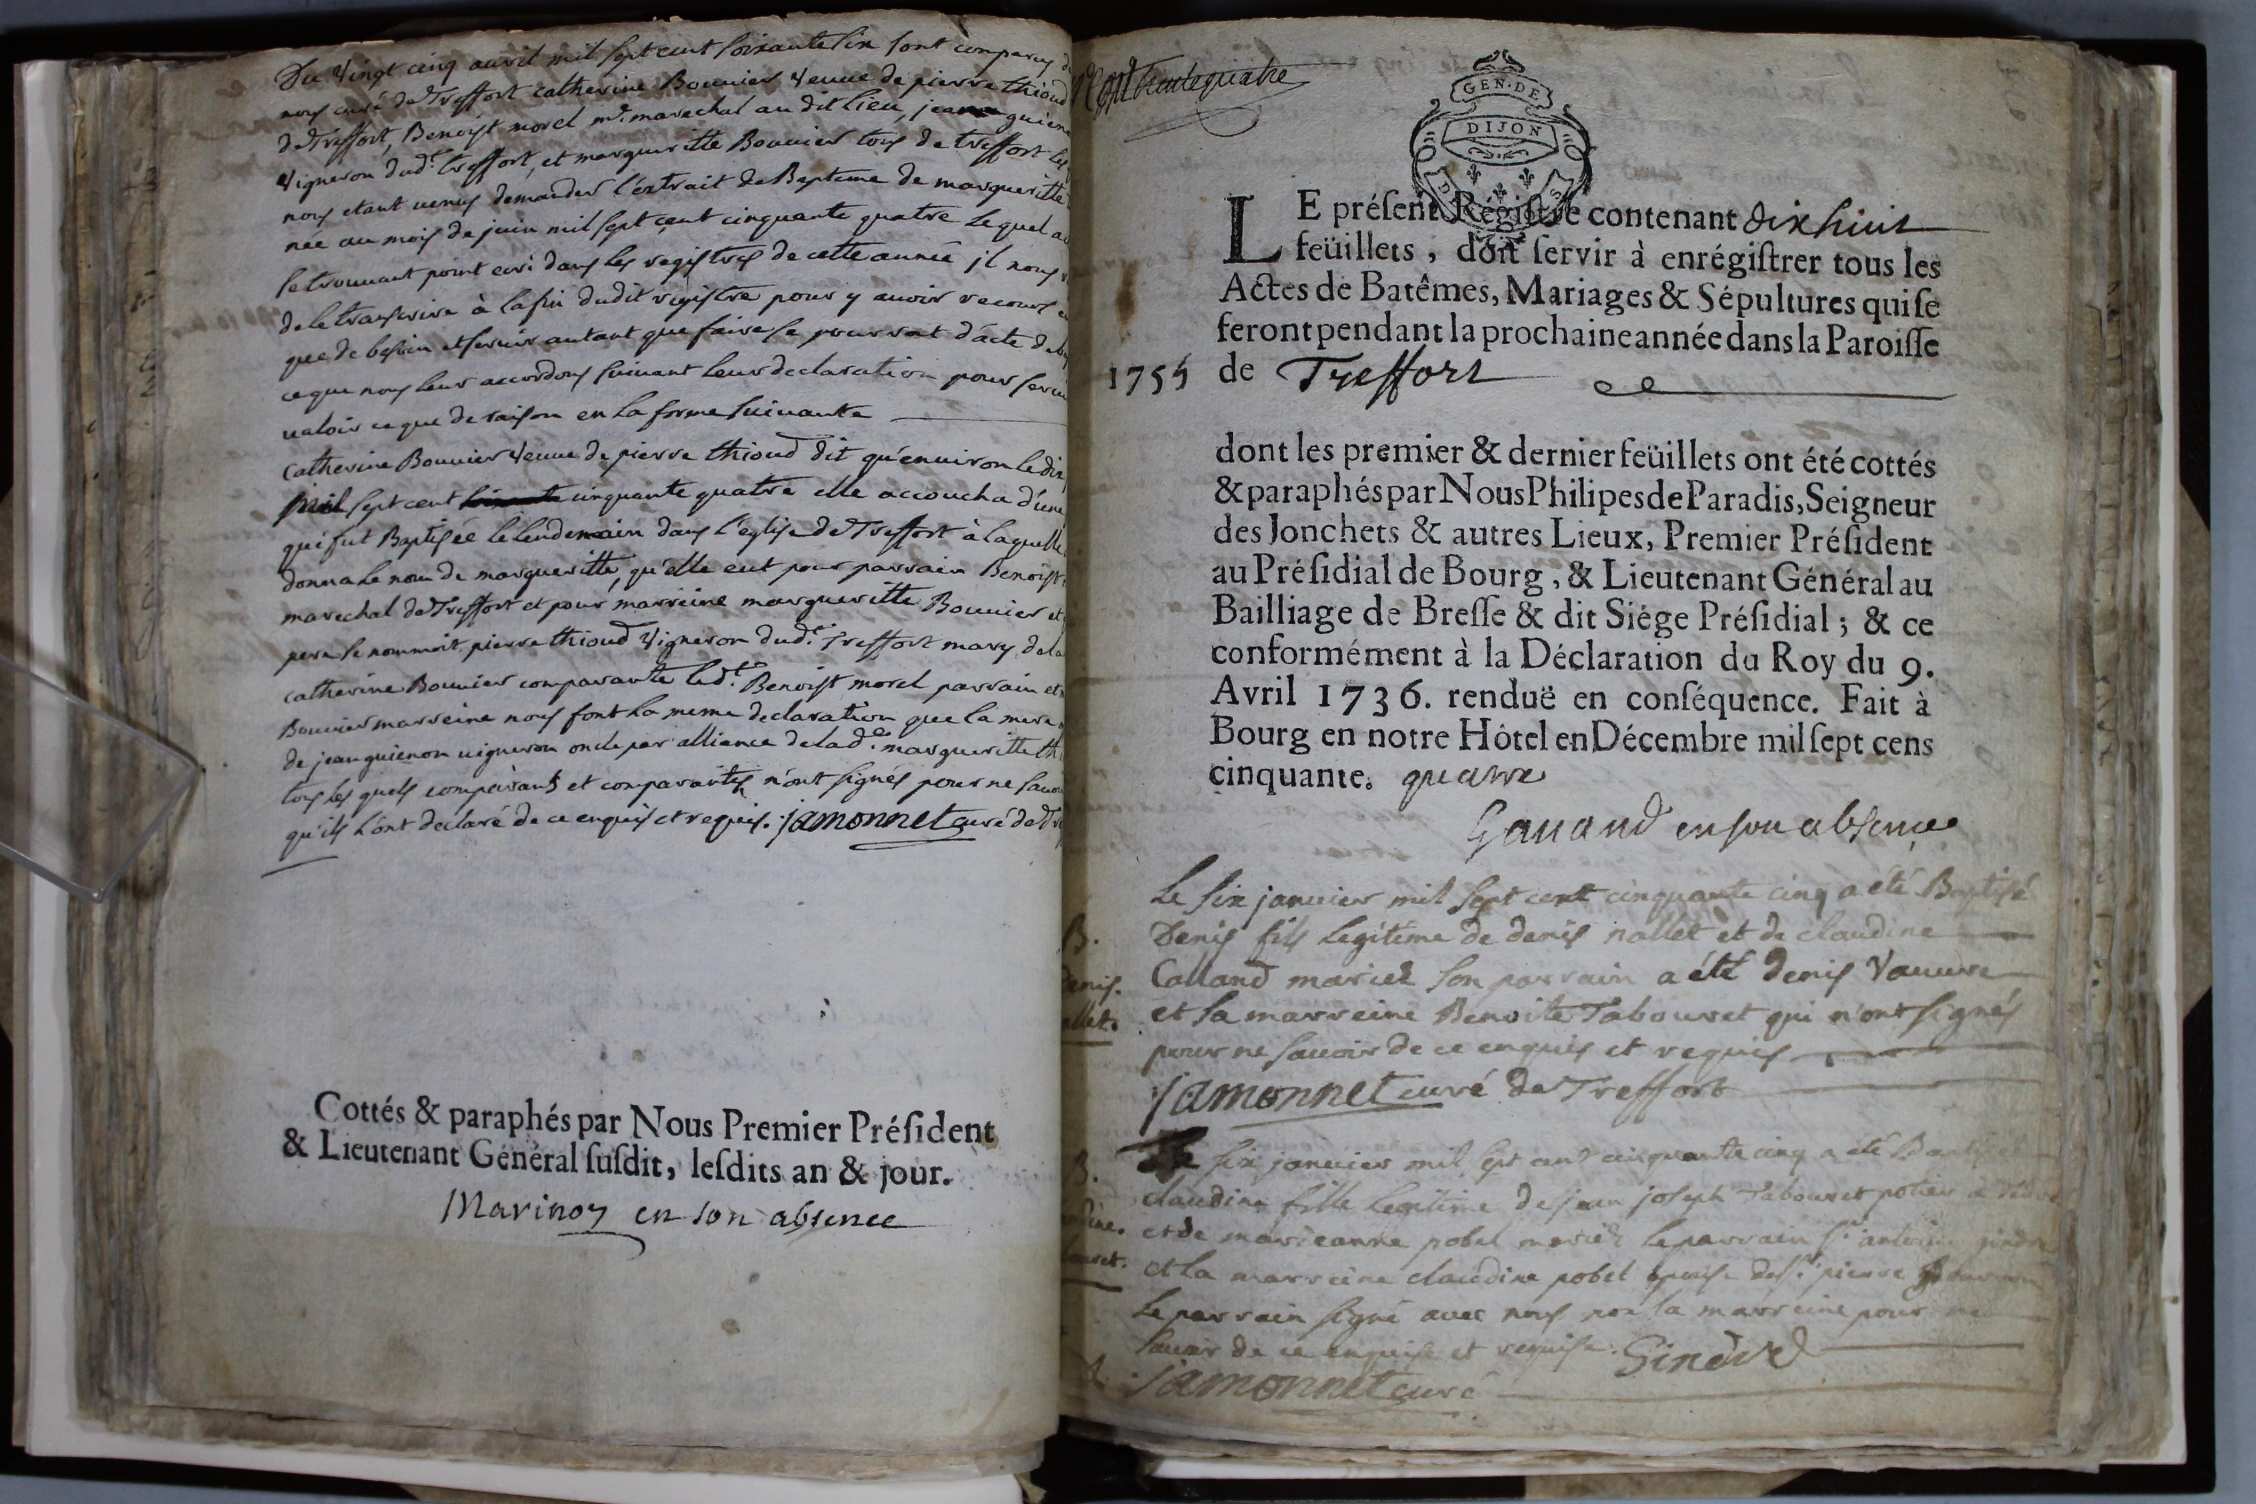 Du vingt cinq avril mil sept cent soixante six sont comparus
nous curé de Treffort catherine Bouvier veuve de pierre thioud
de Treffort, Benoist morel md. marechal au dit lieu, jean guienon
vigneron dud.t treffort, et margueritte Bouvier tous de treffort les
nous etant venus demander l'extrait de Bapteme de margueritte
née au mois de juin mil sept cent cinquante quatre lequel
se trouvant point ecri dans les registres de cette année il nous
de le transcrire à la fin dudit registre pour y avoir recours
que de besoin et servir autant que faire se pourroit d'acte de
ce que nous leur accordons suivant leur declaration pour servir
valoir ce que de raison en la forme suivante
catherine Bouvier veuve de pierre thioud dit qu'environ le dix
mil sept cent cinquante quatre elle accoucha d'une
qui fut Baptisée le lendemain dans l'eglise de Treffort à laquelle
donna le nom de margueritte, qu'elle eut pour parrain Benoist
marechal de Treffort et pour marreine margueritte Bouvier et
pere se nommoit pierre thioud vigneron dud.t Treffort mary de la
catherine Bouvier comparante led.t Benoist morel parrain et
Bouvier marreine nous font la meme declaration que la mere
de jean guienon vigneron oncle par alliance de lad.e margueritte th
tous les quels comparants et comparantes n'ont signés pour ne savoir
qu'ils l'ont declaré de ce enquis et requis. jamonnet curé de Tre
Cottés & paraphés par Nous Premier Préſident
& Lieutenant Général ſuſdit, leſdits an & jour.
Marinoy en son absence
trentequatre
GEN. DE
DIJON
LE préſent Régiſtre contenant dix huit
feüillets, doit ſervir à enrégiſtrer tous les
Actes de Batêmes, Mariages & Sépultures qui ſe
feront pendant la prochaine année dans la Paroiſſe
1755 de Treffort
dont les premier & dernier feüillets ont été cottés
& paraphés par Nous Philipes de Paradis, Seigneur
des Jonchets & autres Lieux, Premier Préſident
au Préſidial de Bourg, & Lieutenant Général au
Bailliage de Breſſe & dit Siége Préſidial; & ce
conformément à la Déclaration du Roy du 9.
Avril 1736. renduë en conſéquence. Fait à
Bourg en notre Hôtel en Décembre mil ſept cens
cinquante. quatre
Gauand en son absence
B.
Denis
nallet.
Le six janvier mil sept cent cinquante cinq a été Baptisé
Denis fils legitime de denis nallet et de claudine
Calland mariez son parrain a été denis Vauvre
et la marreine Benoite Tabouret qui n'ont signés
pour ne savoir de ce enquis et requis
jamonnet curé de Treffort
B.
Le six janvier mil sept cent cinquante cinq a été Baptisée
claudine fille legitime de jean joseph Tabouret potier
et de marieanne pobel mariéz le parrain s.r antoine gindre
et la marreine claudine pobel epouse de s.r pierre
le parrain signé avec nous non la marreine pour ne
savoir de ce enquise et requise. Gindre
jamonnet curé